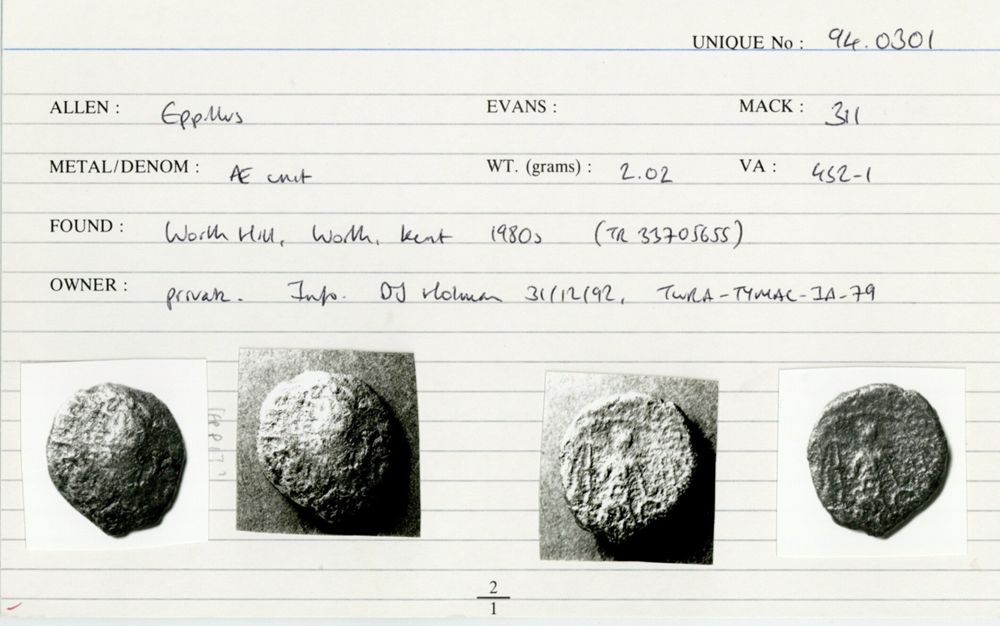 UNIQUE No : 94.0301
ALLEN : Eppillus EVANS : MACK : 311
METAL/DENOM : Æ unit WT. (grams) : 2.02 VA : 452-1
FOUND : Worth Hill, Worth, Kent 1980s (TR 33705655)
OWNER : private. Info. DJ Holman 31/12/92, TWRA-TYMAC-IA-79
2
1